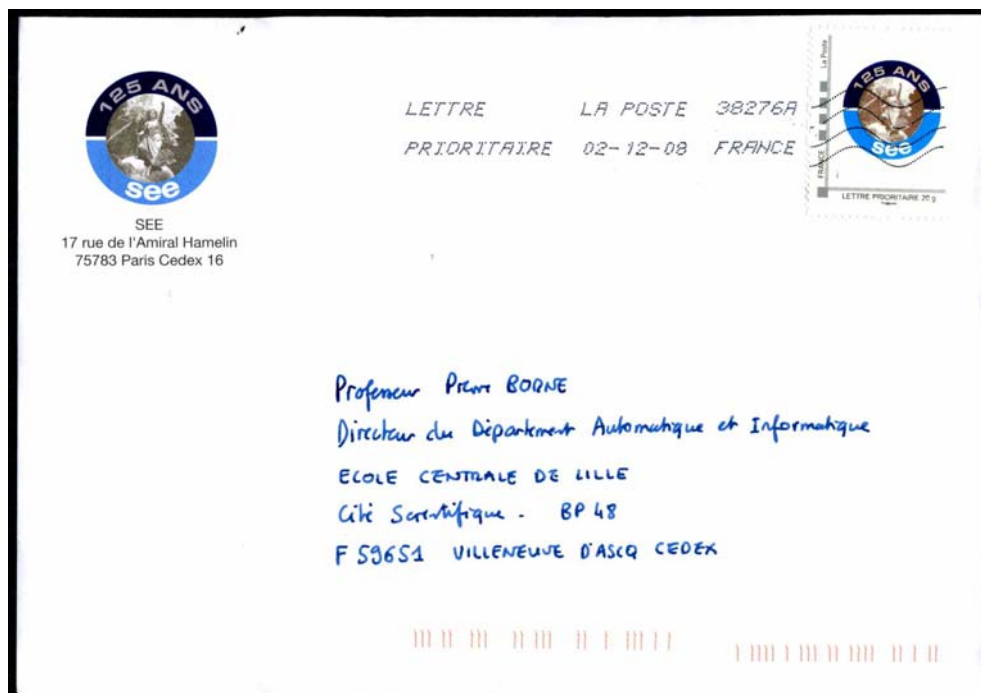 125 ANS
see
SEE
17 rue de l'Amiral Hamelin
75783 Paris Cedex 16
LETTRE LA POSTE 38276A
PRIORITAIRE 02-12-08 FRANCE
La Poste
125 ANS
see
FRANCE
LETTRE PRIORITAIRE 20 g
Professeur Pierre BORNE
Directeur du Département Automatique et Informatique
ECOLE CENTRALE DE LILLE
Cité Scientifique - BP 48
F 59651 VILLENEUVE D'ASCQ CEDEX